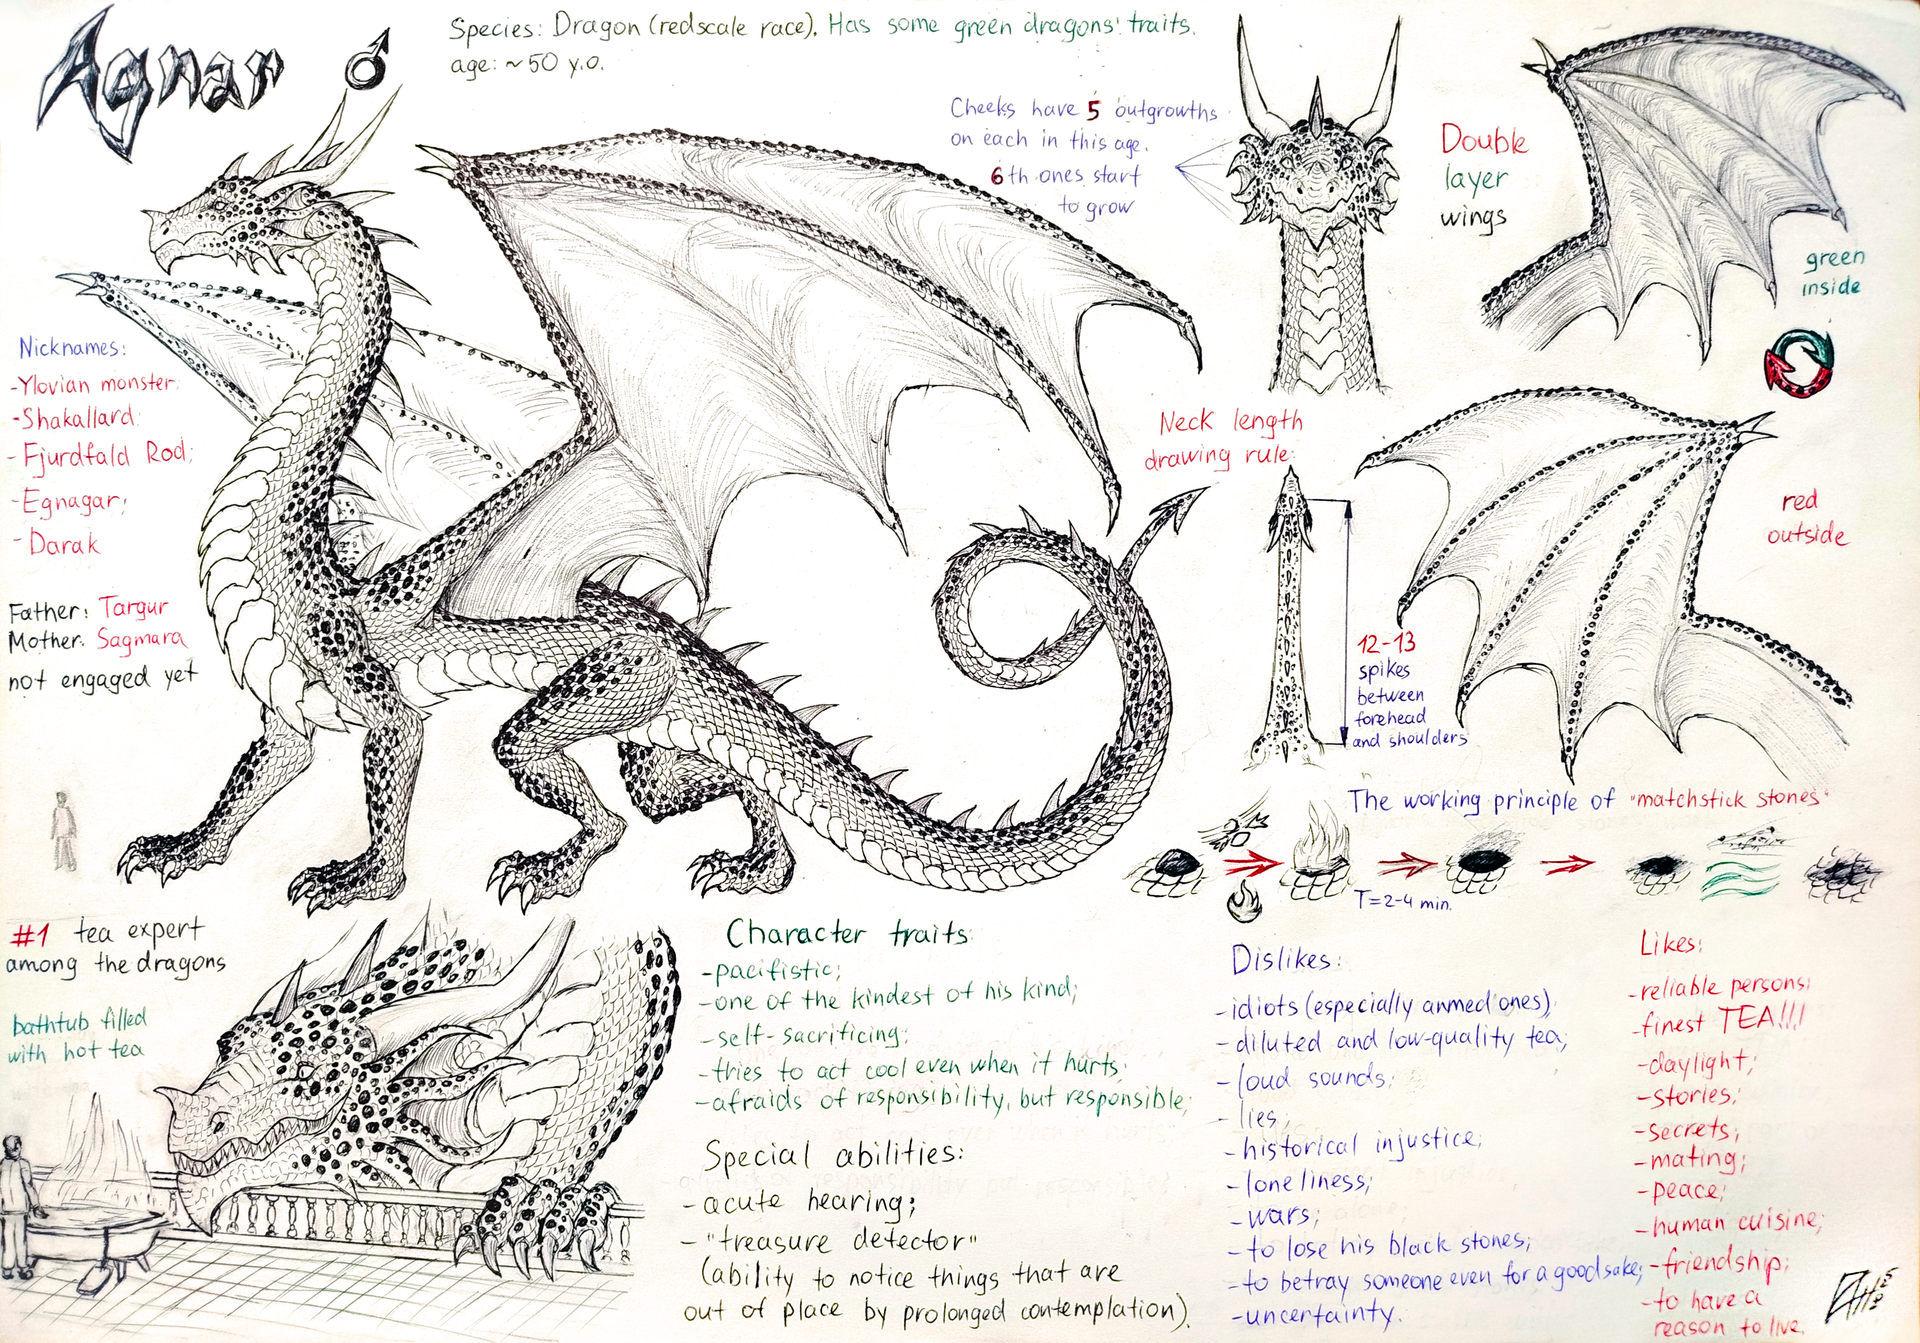 Agnar ♂
Species: Dragon (redscale race). Has some green dragons' traits.
age: ~50 y.o.
Cheeks have 5 outgrowths
on each in this age.
6th ones start
to grow
Double
layer
wings
green
inside
red
outside
Nicknames:
-Ylovian monster;
-Shakallard;
-Fjurdfald Rod;
-Egnagar;
-Darak
Father: Targur
Mother: Sagmara
not engaged yet
Neck length
drawing rule:
12-13
spikes
between
forehead
and shoulders
The working principle of "matchstick stones"
T=2-4 min.
#1 tea expert
among the dragons
bathtub filled
with hot tea
Character traits:
-pacifistic;
-one of the kindest of his kind;
-self-sacrificing;
-tries to act cool even when it hurts;
-afraids of responsibility, but responsible;
Special abilities:
-acute hearing;
-"treasure detector"
(ability to notice things that are
out of place by prolonged contemplation).
Dislikes:
-idiots (especially armed ones);
-diluted and low-quality tea;
-loud sounds;
-lies;
-historical injustice;
-loneliness;
-wars;
-to lose his black stones;
-to betray someone even for a good sake;
-uncertainty.
Likes:
-reliable persons;
-finest TEA!!!
-daylight;
-stories;
-secrets;
-mating;
-peace;
-human cuisine;
-friendship;
-to have a
reason to live.